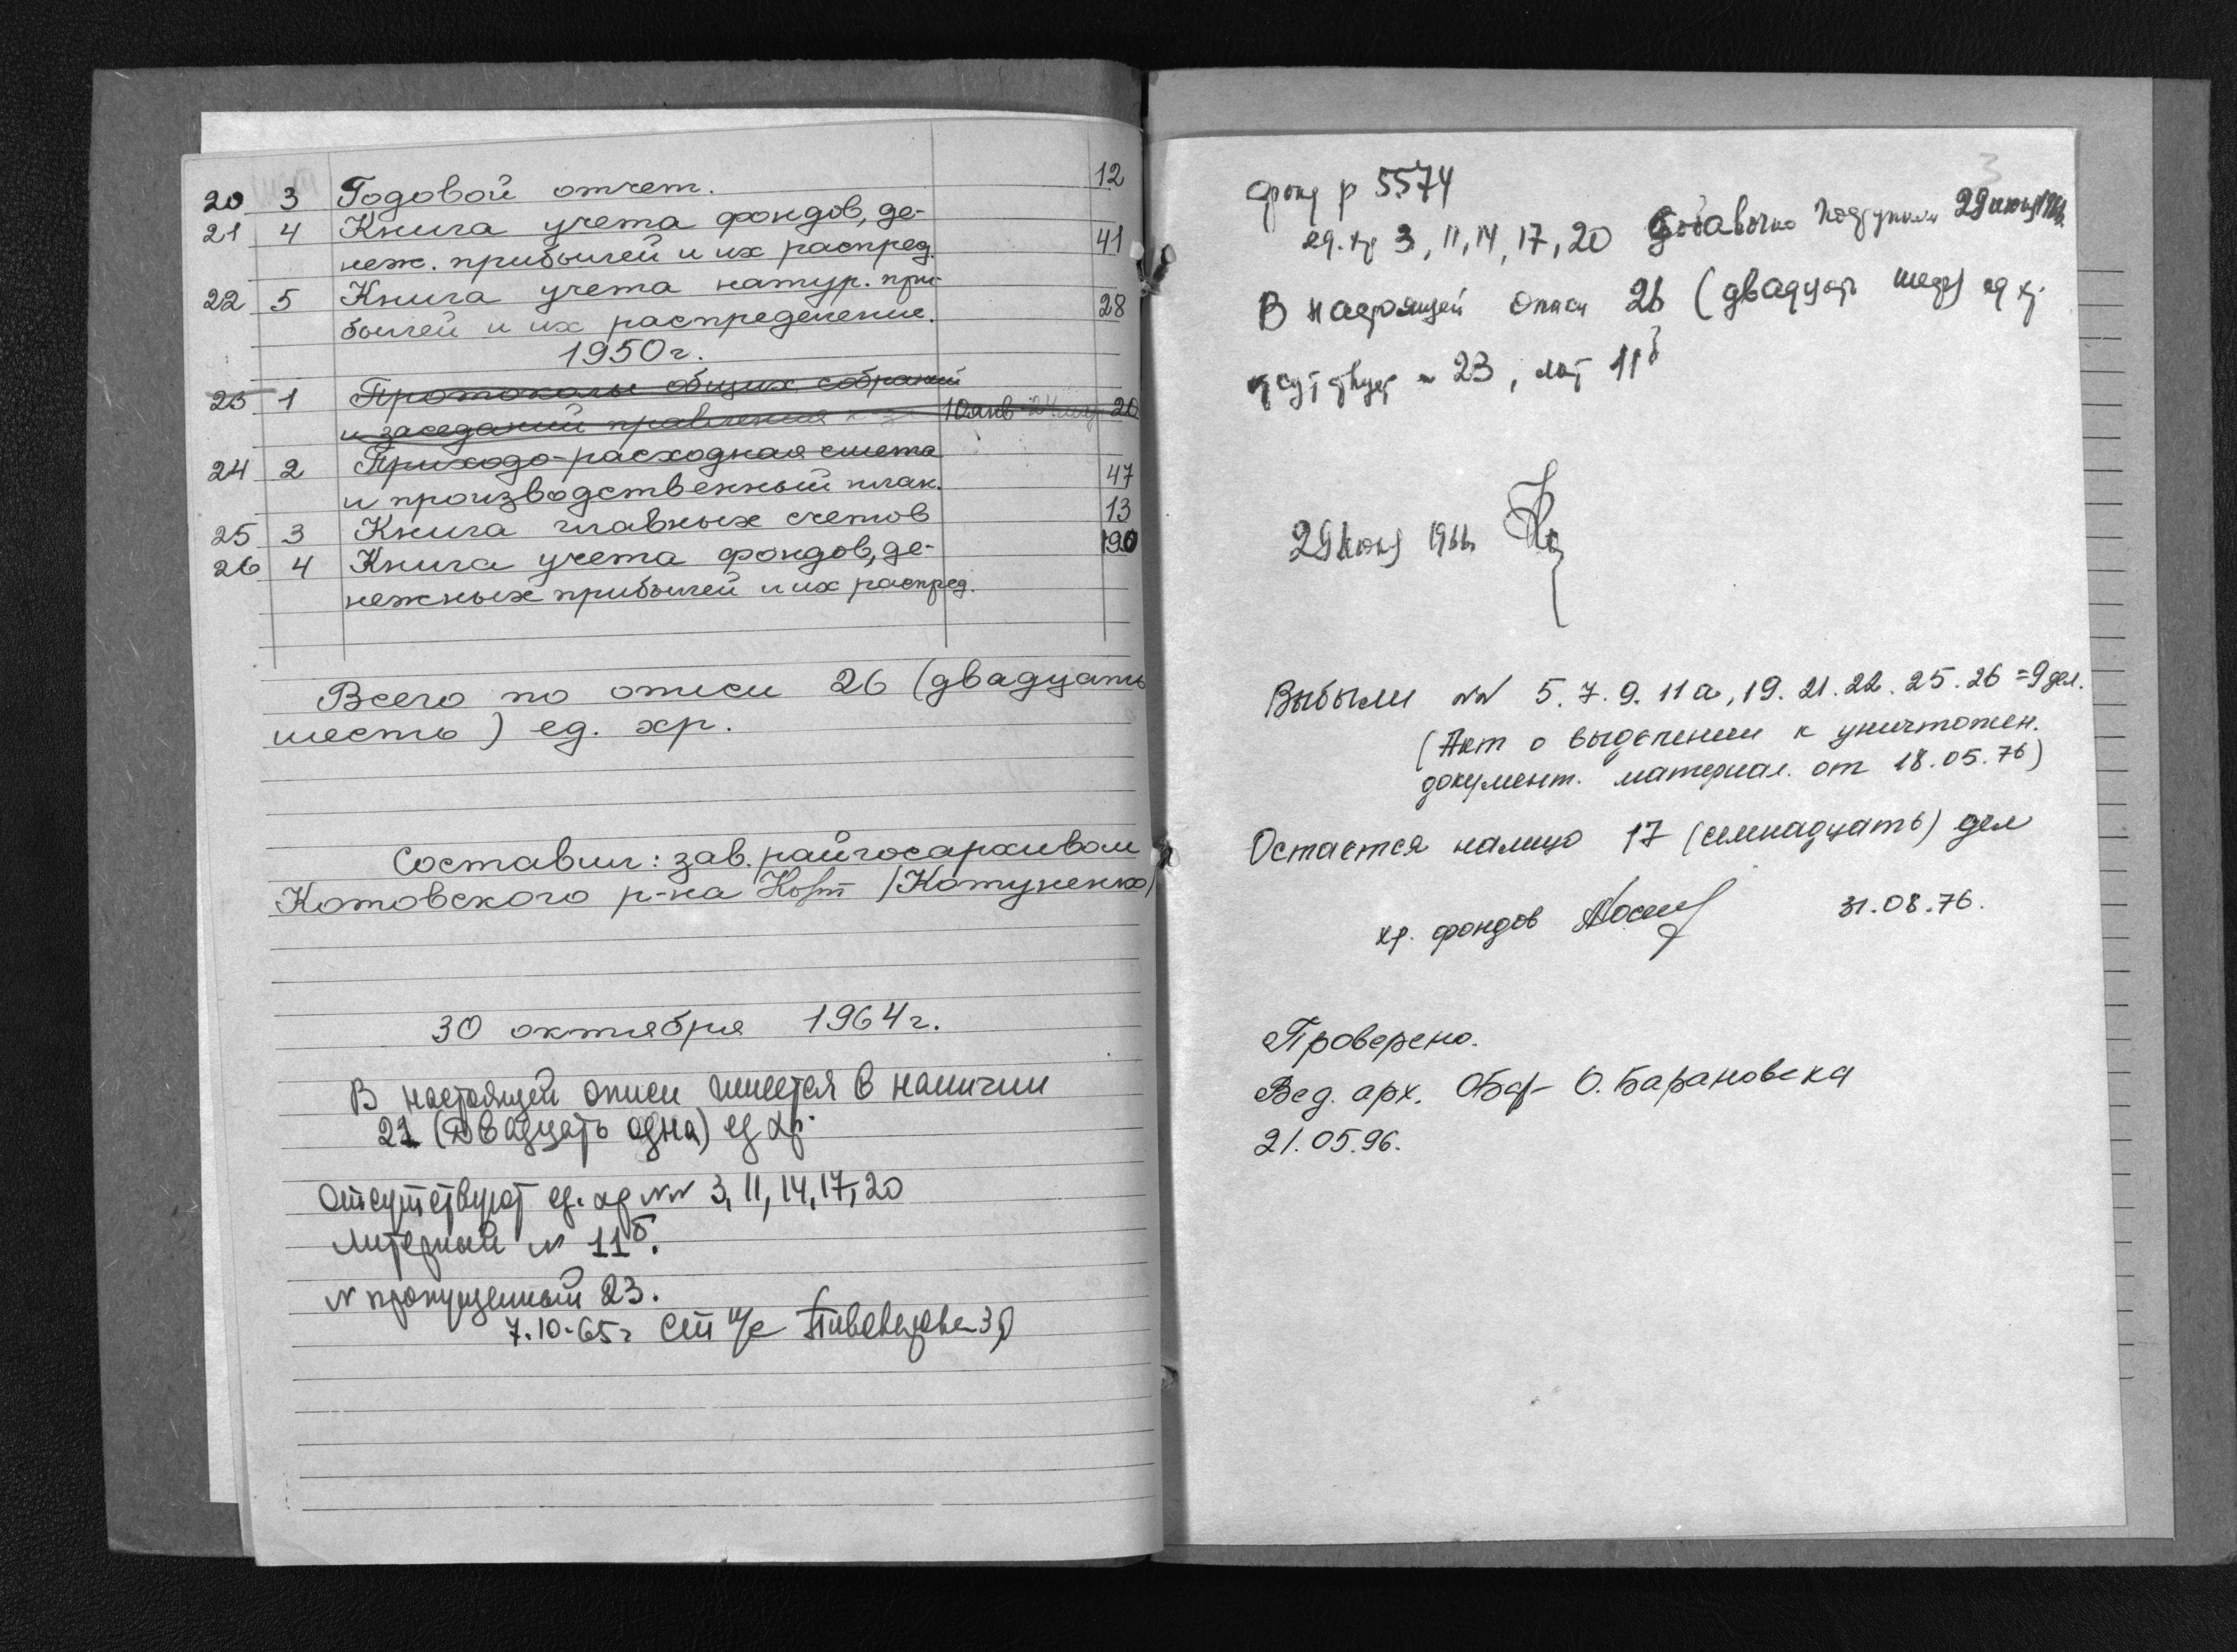 20 3 Годовой отчет. 12
21 4 Книга учета фондов, де-
неж. прибылей и их распред. 41
22 5 Книга учета натур. при-
былей и их распределение. 28
1950г.
23 1 Протоколы общих собраний
и заседаний правления 10 янв 20
24 2 Приходо-расходная смета
и производственный план. 47
25 3 Книга главных счетов 13
26 4 Книга учета фондов, де- 190
нежных прибылей и их распред.
Всего по описи 26 (двадцать
шесть) ед. хр.
Составил: зав. райгосархивом
Котовского р-на /Котуненко/
30 октября 1964г.
В настоящей описи имеется в наличии
21 (Двадцать одна) ед хр.
Отсутствуют ед. хр №№ 3, 11, 14, 17, 20
Литерный № 11б.
№ пропущенный 23.
7.10-65г Ст н/с
3
фонд р 5574
ед. хр 3, 11, 14, 17, 20 поступили 29 июня
В настоящей описи 26 (двадцать шесть) ед хр.
отсутствует № 23, лит 11б
29 июня 1966
Выбыли №№ 5. 7. 9. 11а, 19. 21. 22. 25. 26 = 9 дел.
(Акт о выделении к уничтожен.
документ. материал. от 18.05.76)
Остается налицо 17 (семнадцать) дел
хр. фондов 31.08.76.
Проверено.
Вед. арх. О. Барановска
21.05.96.